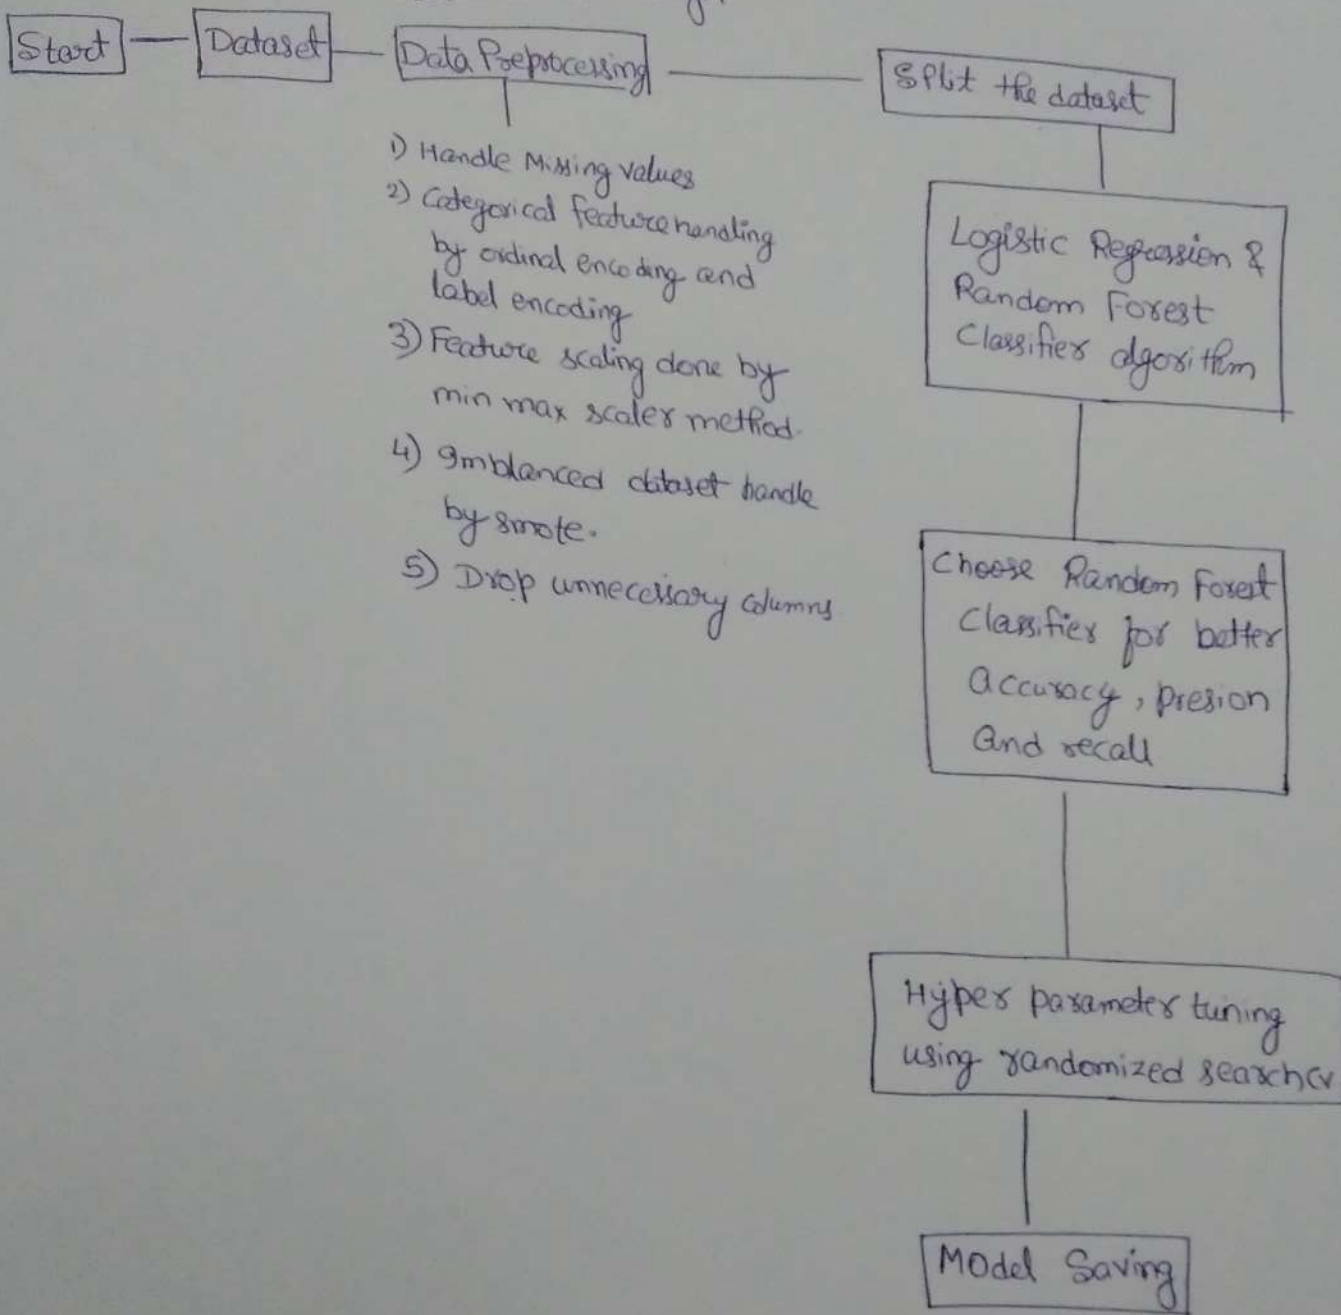 Start
Dataset
Data Preprocessing
1) Handle Missing values
2) Categorical feature handling
by ordinal encoding and
label encoding
3) Feature scaling done by
min max scaler method.
4) Imblanced dataset handle
by smote.
5) Drop unnecessary columns
Split the dataset
Logistic Regression &
Random Forest
Classifier algorithm
Choose Random Forest
Classifier for better
accuracy, presion
and recall
Hyper parameter tuning
using randomized searchcv
Model Saving